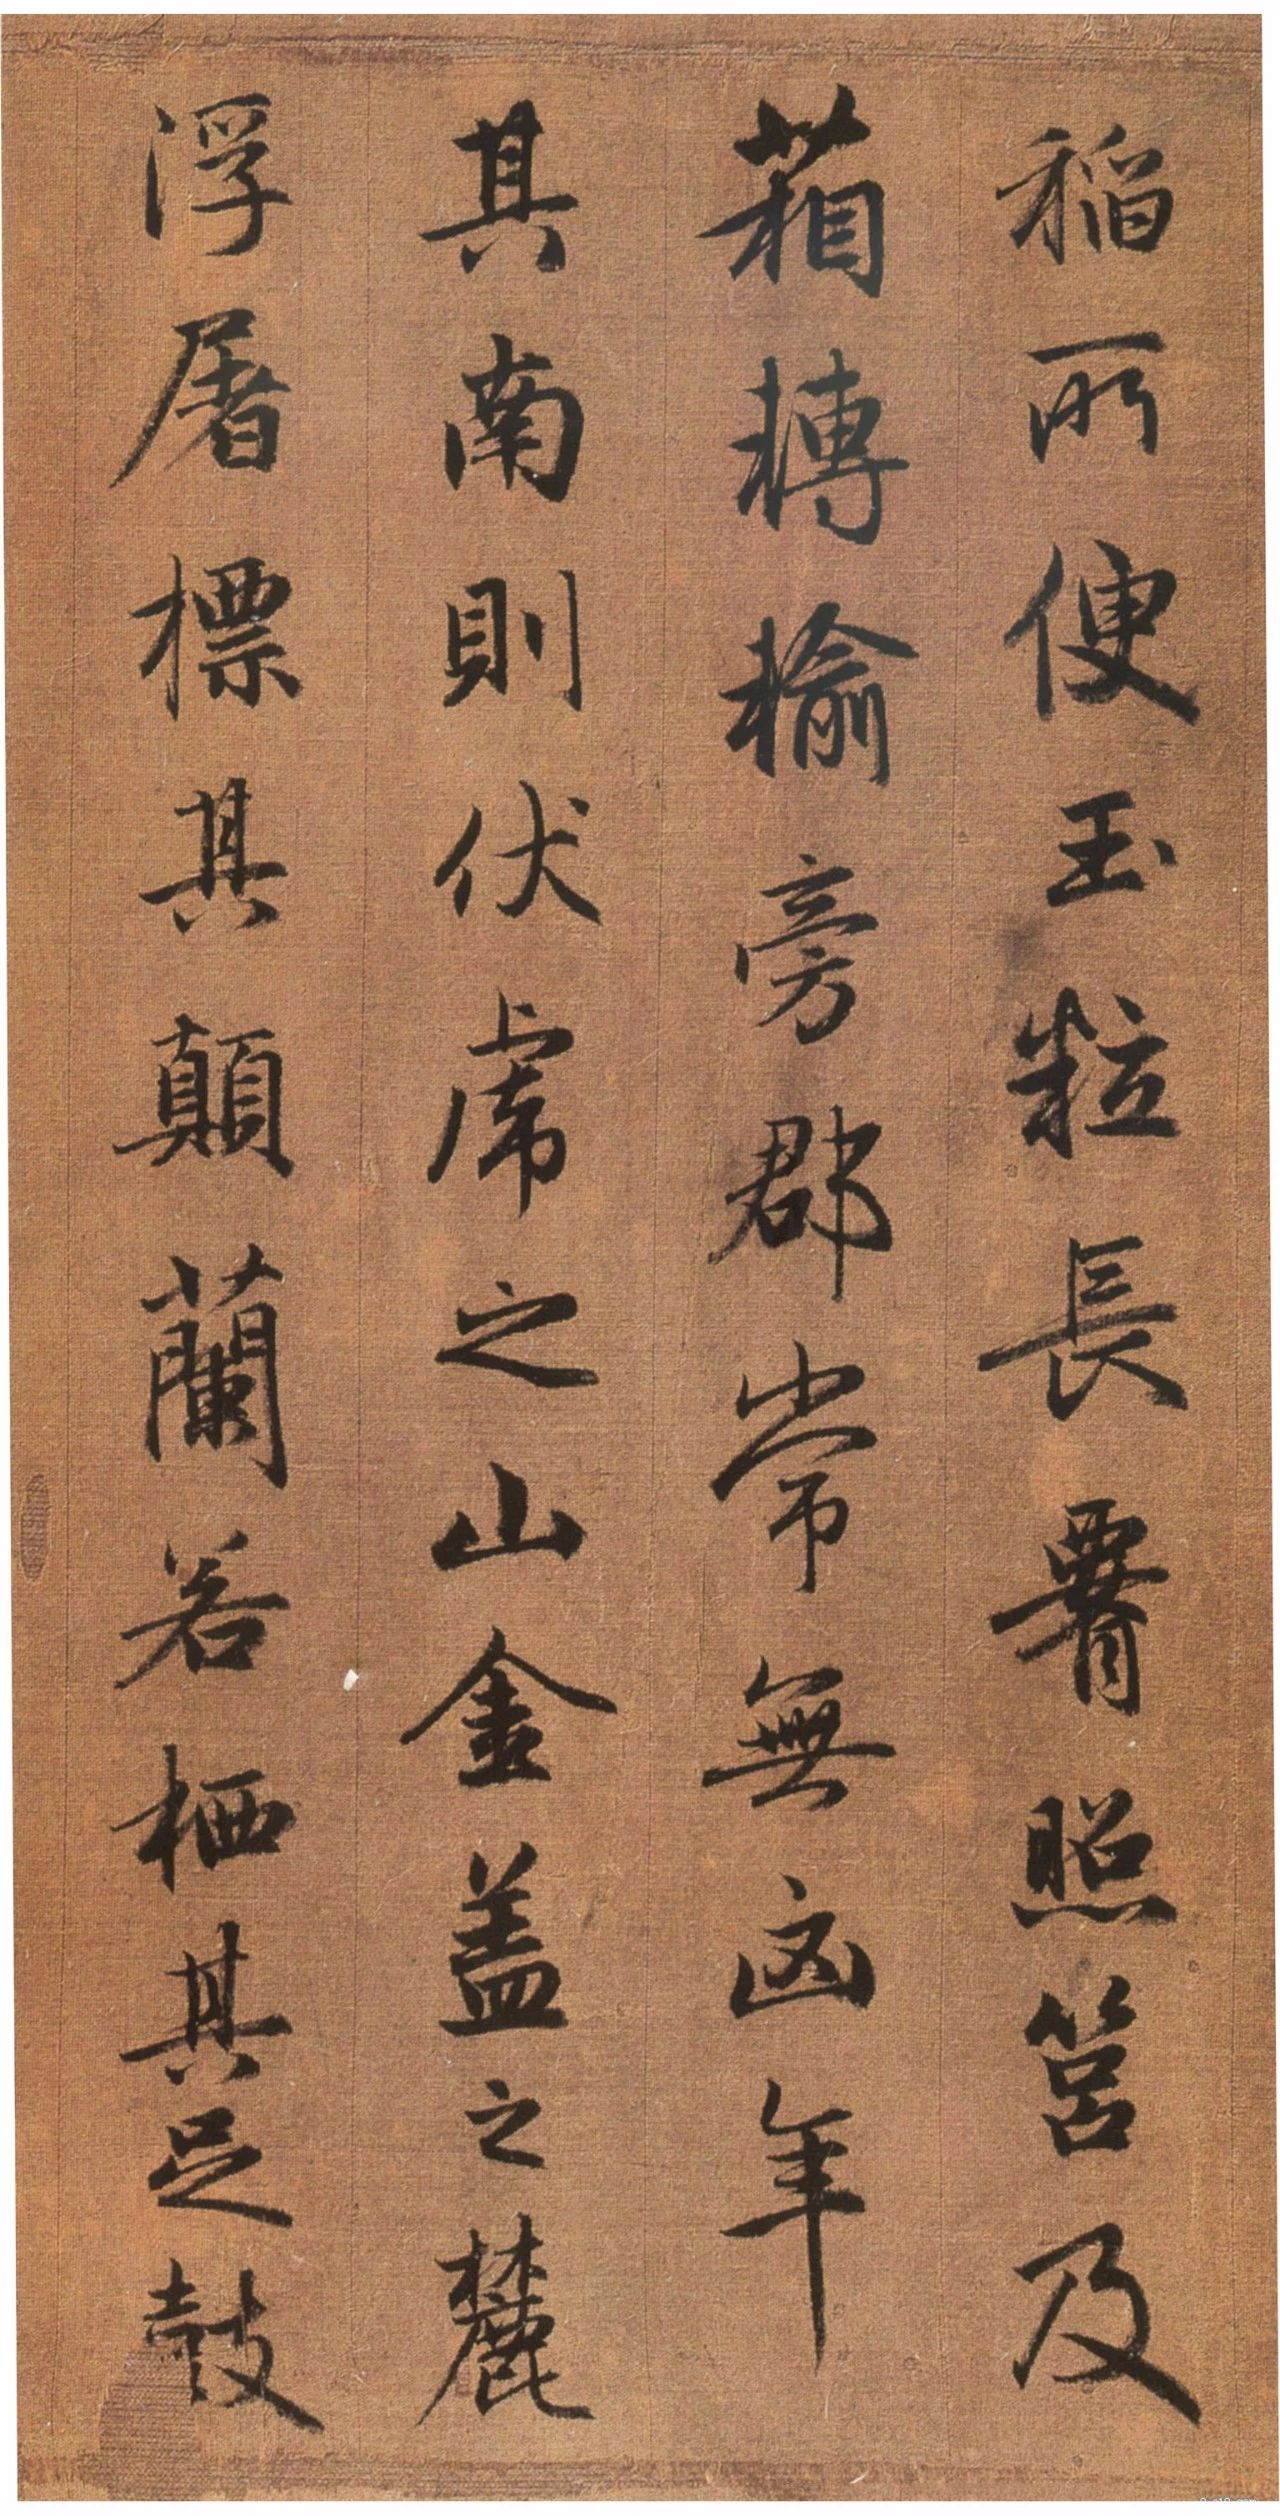 稻所便玉粒長腰照筥及
葙轉輸旁郡常無凶年
其南則伏虎之山金盖之麓
浮屠標其顛蘭若栖其足鼓